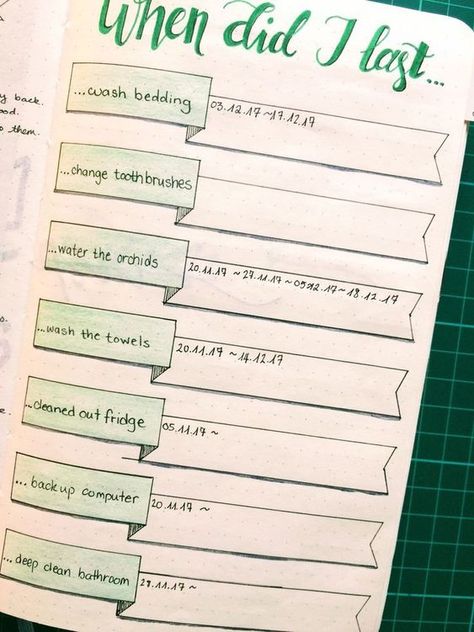 back.
them.
When did I last...
...wash bedding
03.12.17~17.12.17
...change toothbrushes
...water the orchids
20.11.17 ~ 27.11.17 ~ 05.12.17 ~ 18.12.17
...wash the towels
20.11.17 ~ 14.12.17
...cleaned out fridge
05.11.17 ~
...backup computer
20.11.17 ~
...deep clean bathroom